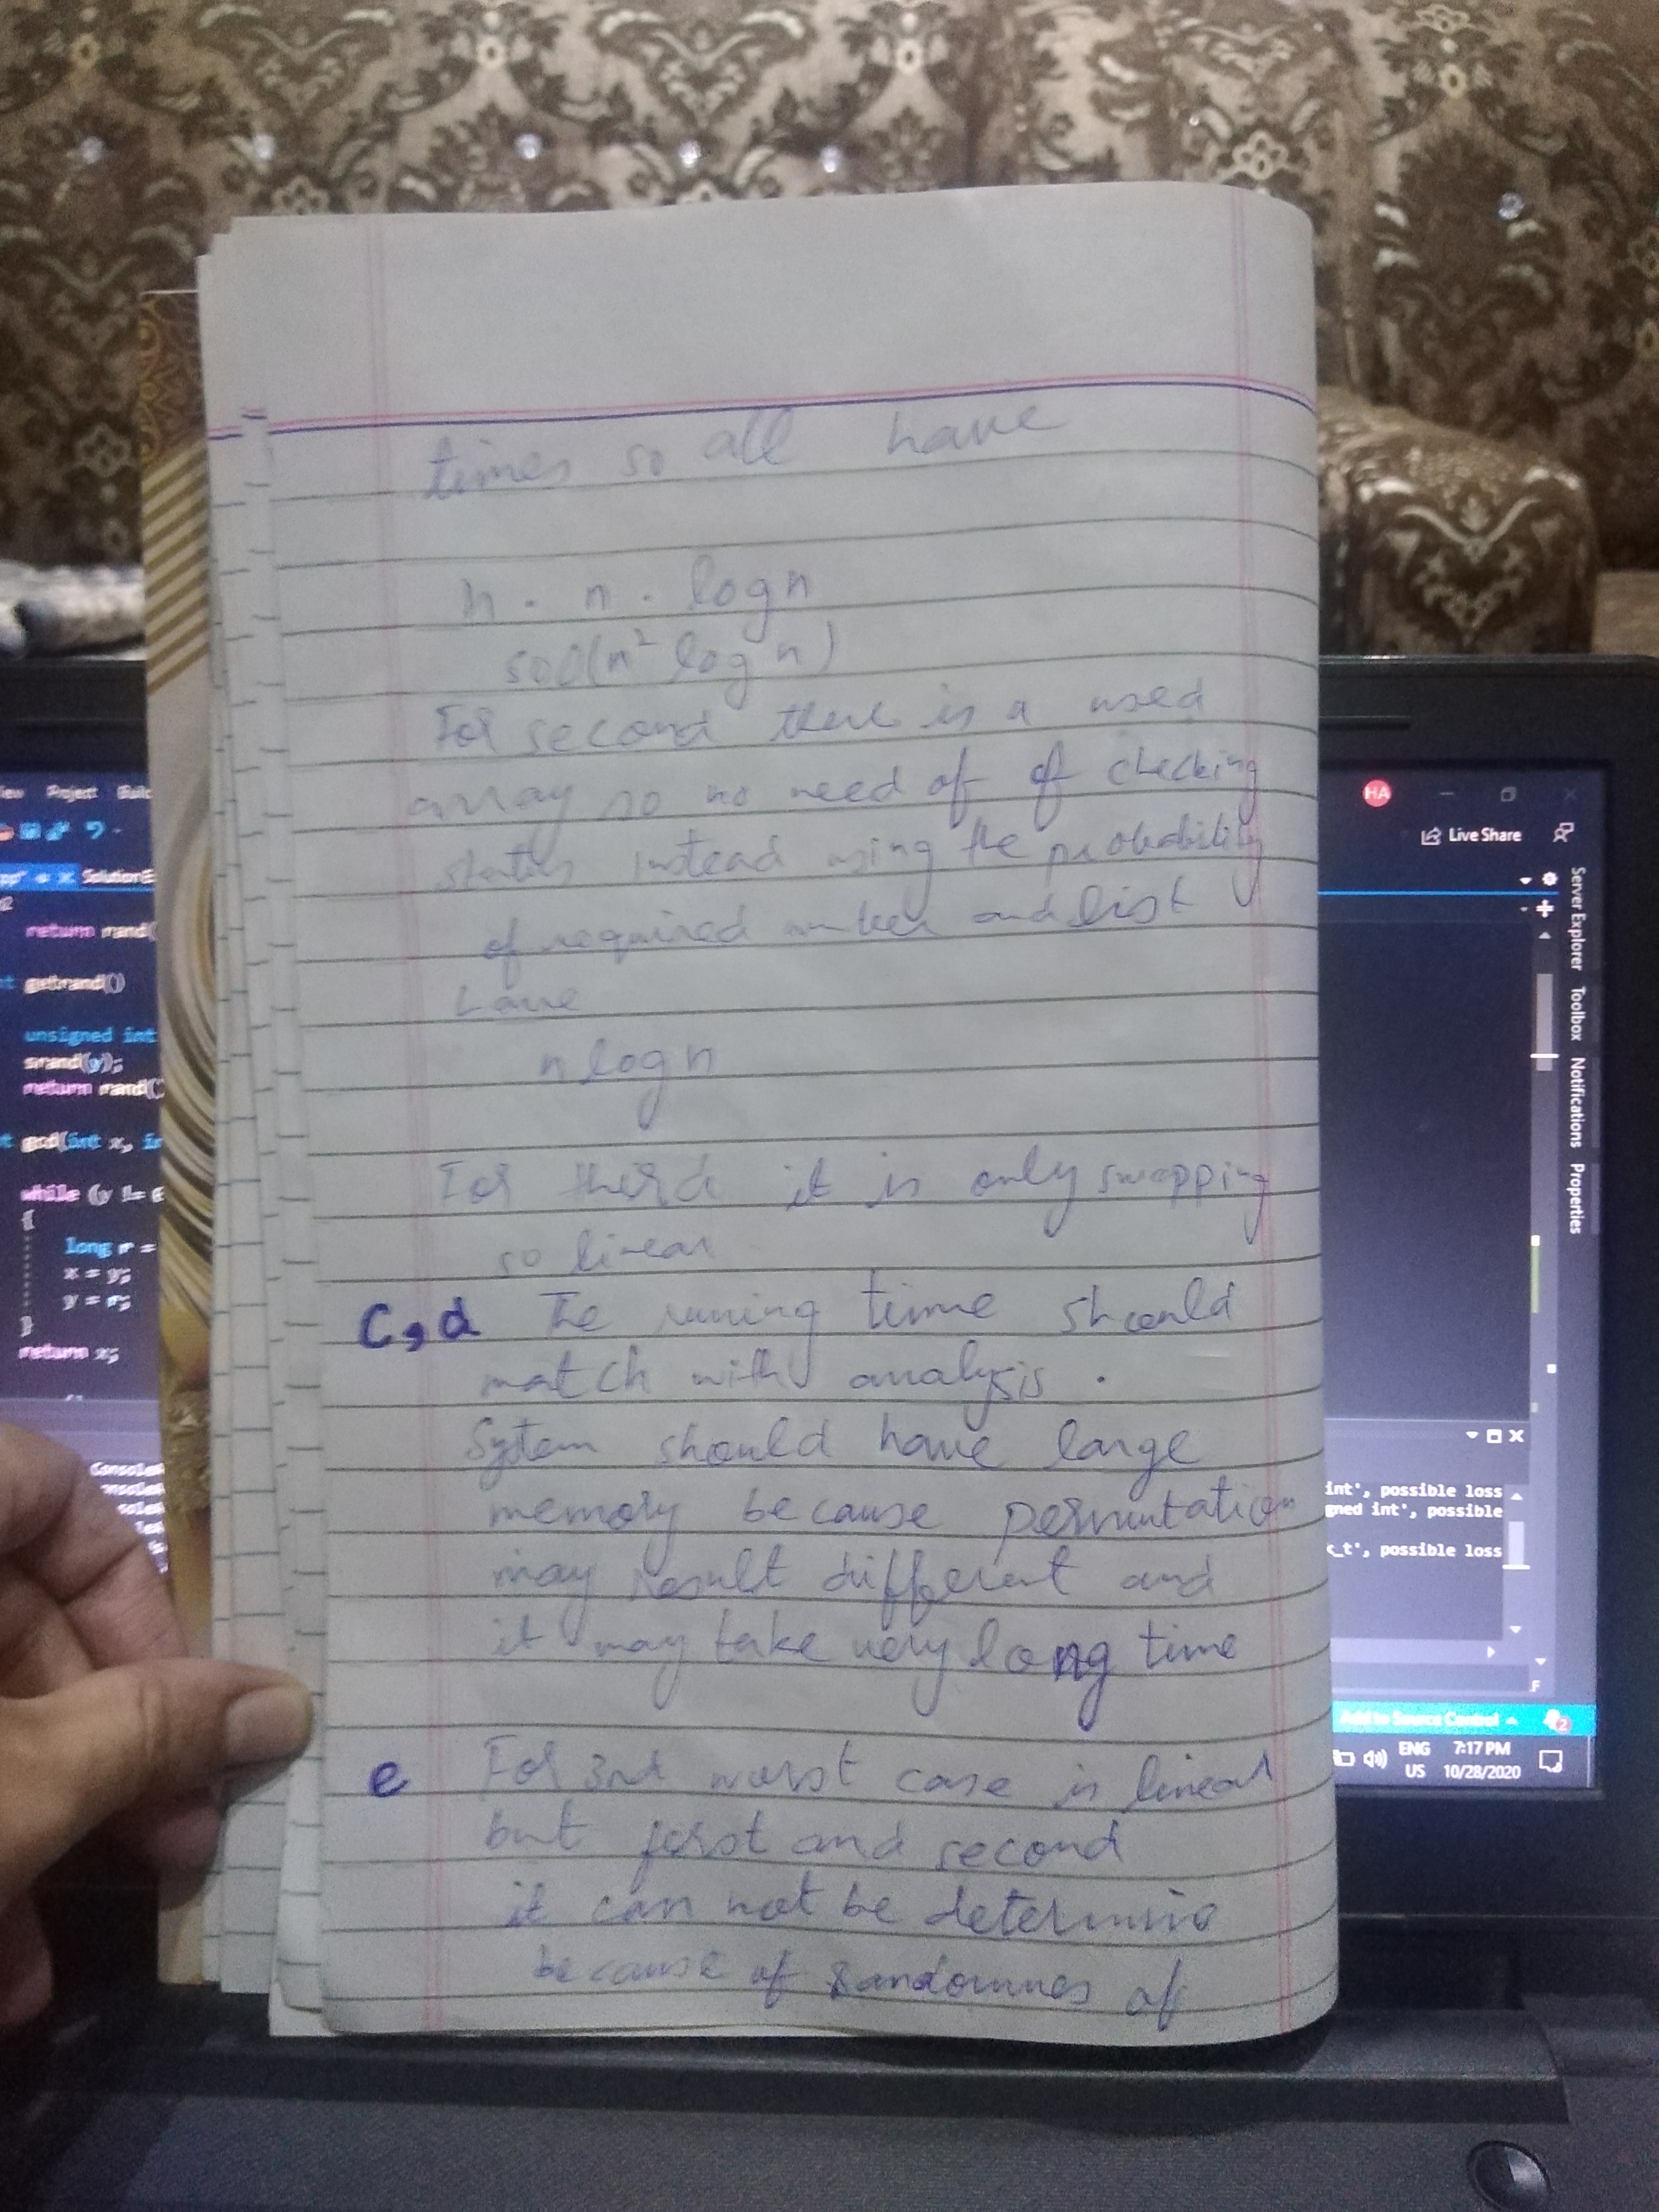 times so all have
n . n . log n
so O(n² log n)
For second there is a used
array so no need of of checking
instead using the probability
of required and list
have
n log n
For therd it is only swapping
so linear
C, d The runing time should
match with analysis .
System should have large
memory because permutation
may result different and
it may take very long time
e For 3rd worst case is linear
but first and second
it can not be determine
because of Randomnes of
iew Project Buil
SolutionE
return rand(
getrand()
unsigned int
srand(y);
return rand(
gcd(int x, in
while (y !=
{
long r =
x = y;
y = r;
}
return x;
HA
Live Share
Server Explorer
Toolbox
Notifications
Properties
int', possible loss
gned int', possible
_t', possible loss
Add to Source Control
2
ENG
US
7:17 PM
10/28/2020